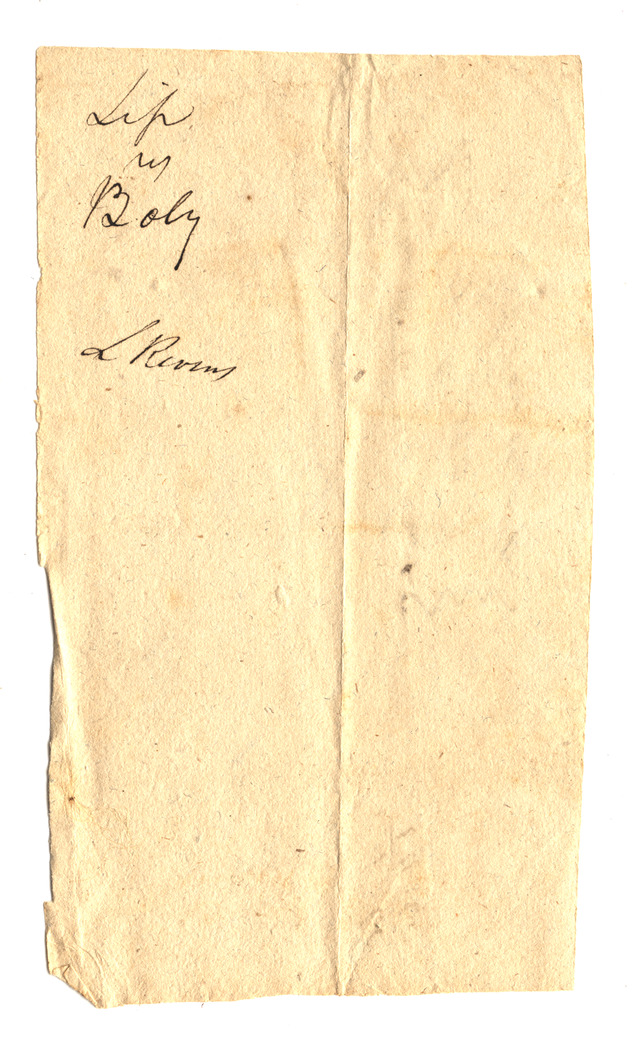 Lip
vs
Boly
L Revens